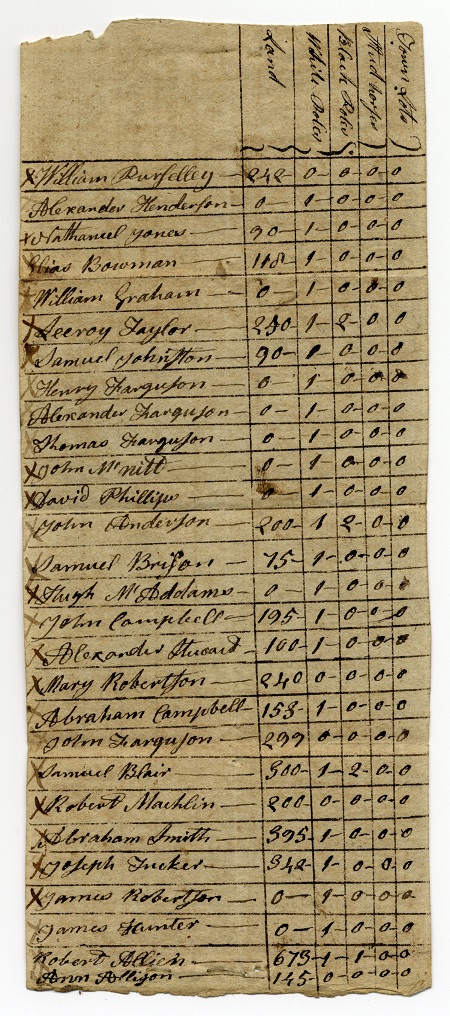 Land White Poles Black Poles Stud horses Town Lots
X William Purselley 242 - 0 - 0 - 0 - 0
Alexander Henderson 0 - 1 - 0 - 0 - 0
X Nathaniel Jones 90 - 1 - 0 - 0 - 0
Elias Bowman 118 1 - 0 - 0 - 0
William Graham 0 - 1 - 0 - 0 - 0
X Leeroy Taylor 250 - 1 - 2 - 0 - 0
X Samuel Johnston 90 - 1 - 0 - 0 - 0
X Henry Farguson 0 - 1 - 0 - 0 - 0
X Alexander Farguson 0 - 1 - 0 - 0 - 0
Thomas Farguson 0 - 1 - 0 - 0 - 0
X John McNitt 0 - 1 - 0 - 0 - 0
X David Phillips 0 - 1 - 0 - 0 - 0
John Anderson 200 - 1 - 2 - 0 - 0
X Samuel Brison 75 - 1 - 0 - 0 - 0
X Hugh McAddams 0 1 - 0 - 0 - 0
X John Campbell 195 - 1 - 0 - 0 - 0
X Alexander Steward 100 - 1 - 0 - 0 - 0
X Mary Robertson 240 0 - 0 - 0 - 0
X Abraham Campbell 153 - 1 - 0 - 0 - 0
X John Farguson 299 0 - 0 - 0 - 0
X Samuel Blair 300 - 1 - 2 - 0 - 0
X Robert Machlin 200 - 0 - 0 - 0 - 0
X Abraham Smith 395 - 1 - 0 - 0 - 0
X Joseph Tucker 342 - 1 - 0 - 0 - 0
X James Robertson 0 - 1 - 0 - 0 - 0
James Hunter 0 - 1 - 0 - 0 - 0
Robert Allien 673 - 1 - 1 - 0 - 0
Ann Allison 145 - 0 - 0 - 0 - 0